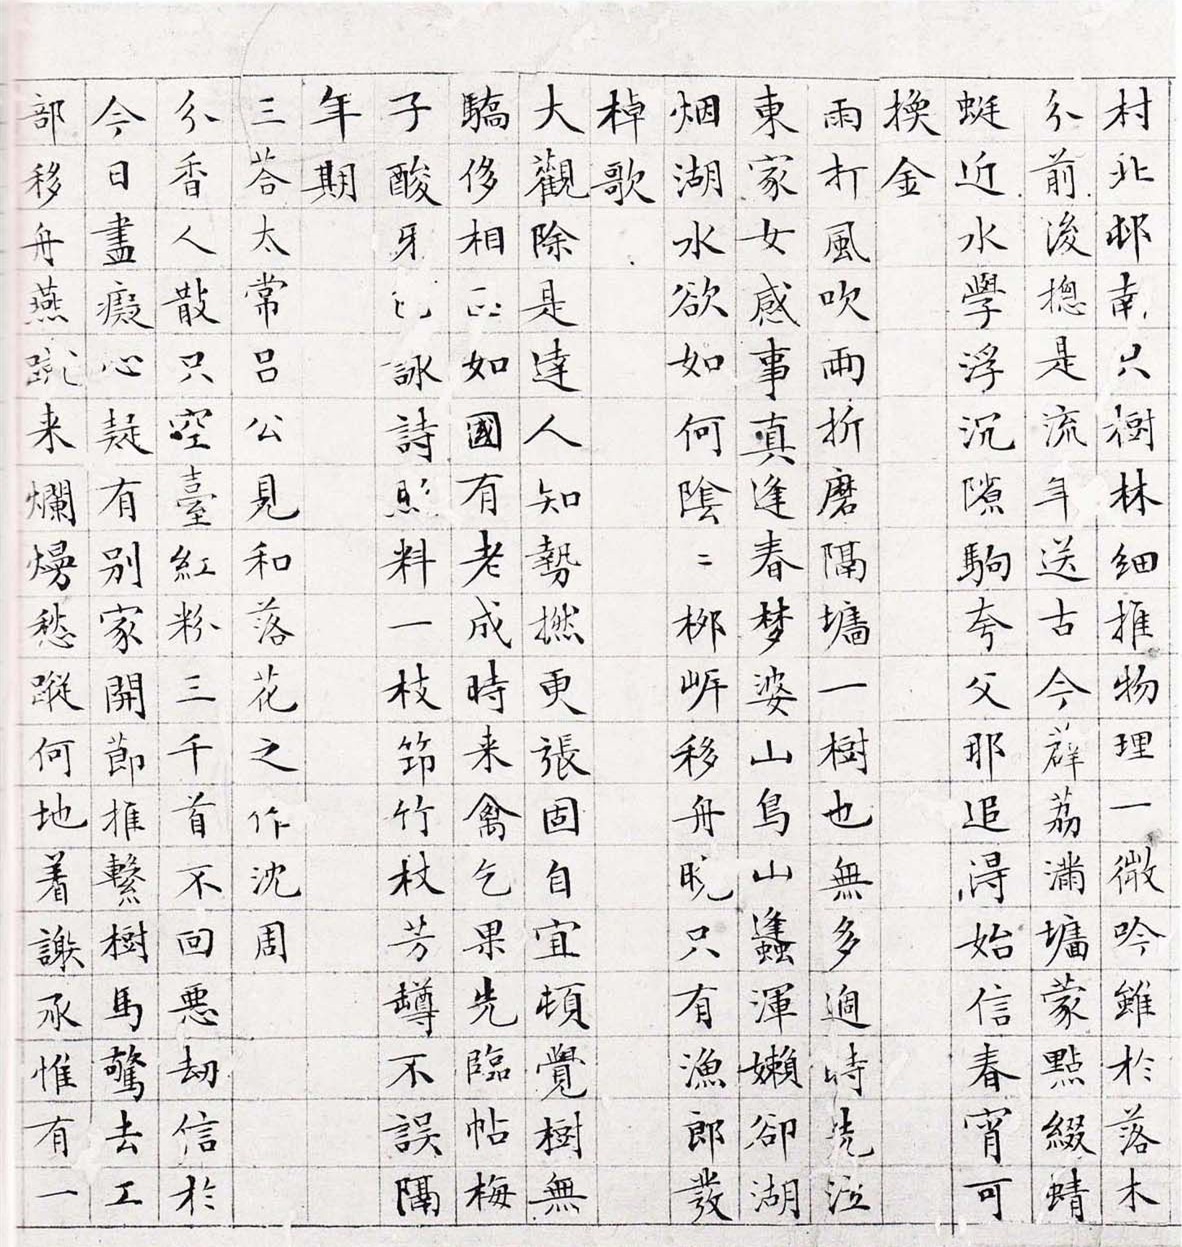 村北邨南只樹林細推物理一微吟雖於落木
分前後摠是流年送古今薜荔滿墻蒙點綴蜻
蜓近水學浮沉隙駒夸父那追得始信春宵可
換金
雨打風吹兩折磨隔墻一樹也無多過時先泣
東家女感事真逢春梦婆山鳥山蠭渾嬾卻湖
烟湖水欲如何陰〻柳岸移舟晚只有漁郎發
棹歌
大觀除是達人知勢撚更張固自宜頓覺樹無
驕侈相正如國有老成時来禽乞果先臨帖梅
子酸牙已詠詩照料一枝笻竹杖芳罇不誤隔
年期
三荅太常呂公見和落花之作沈周
分香人散只空臺紅粉三千首不回悪劫信於
今日盡癡心疑有别家開節推繫樹馬驚去工
部移舟燕蹴来爛熳愁蹤何地着謝承惟有一